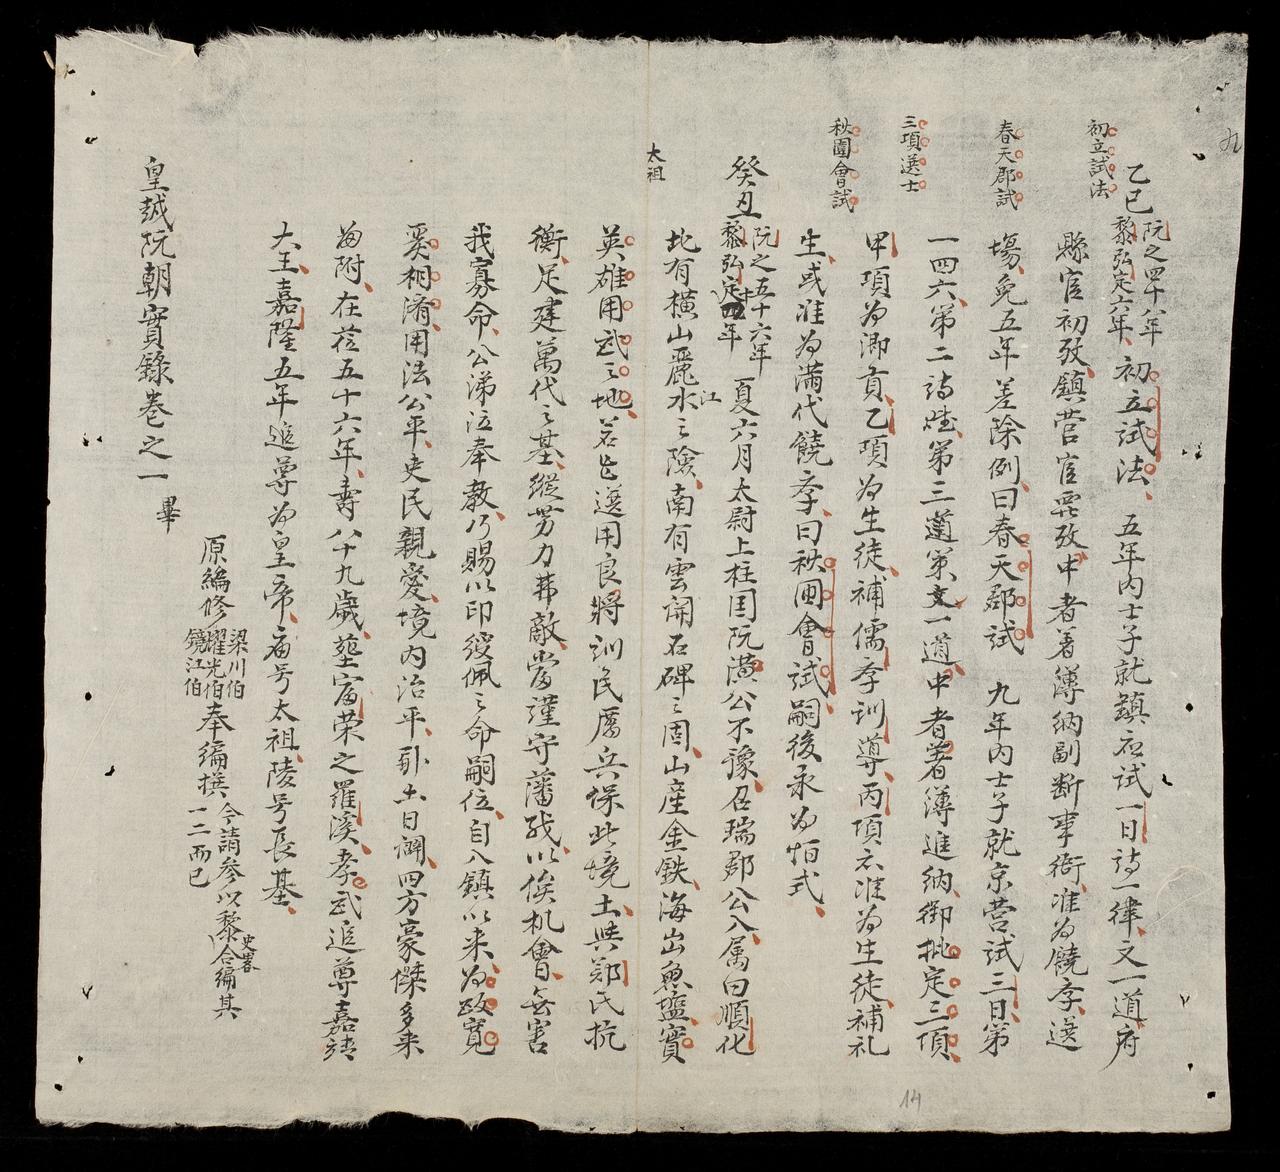 九
初立試法
春天郡試
三項選士
秋圍會試
太祖
乙巳阮之四十八年黎弘定六年初立試法五年內士子就鎮应試一日詩一律文一道府
縣官初攷鎮营官覆攷中者着簿納副断事衙准为饒李选
塲免五年差除例曰春天郡試九年內士子就京营試三日第
一四六第二詩賦第三道策文一道中者著簿進納御批定三項
甲項为鄉貢乙項为生徒補儒李訓導丙項亦准为生徒補礼
生或准为滿代饒李曰秋囲會試嗣後永为恒式
癸丑阮之五十六年黎弘定十四年夏六月太尉上柱国阮潢公不豫召瑞郡公入属曰順化
北有橫山麗江水之險南有雲開石碑之固山産金鉄海出魚塩實
英雄用武之地若能选用良將訓民厲兵保此境土與鄭氏抗
衡足建萬代之基縱势力弗敵當謹守藩職以俟机會無害
我寡命公涕泣奉教乃賜以印綬佩之命嗣位自入鎮以来为政寬
奚相濟用法公平吏民親愛境内治平卧土日闢四方豪傑多来
洶附在莅五十六年壽八十九歲塟富荣之羅溪孝武追尊嘉裕
大王嘉隆五年追尊为皇帝庙号太祖陵号長基
原編修梁川伯耀光伯鏡江伯奉編撰今請参以黎史畧合編其一二而已
皇越阮朝實錄卷之一畢
14